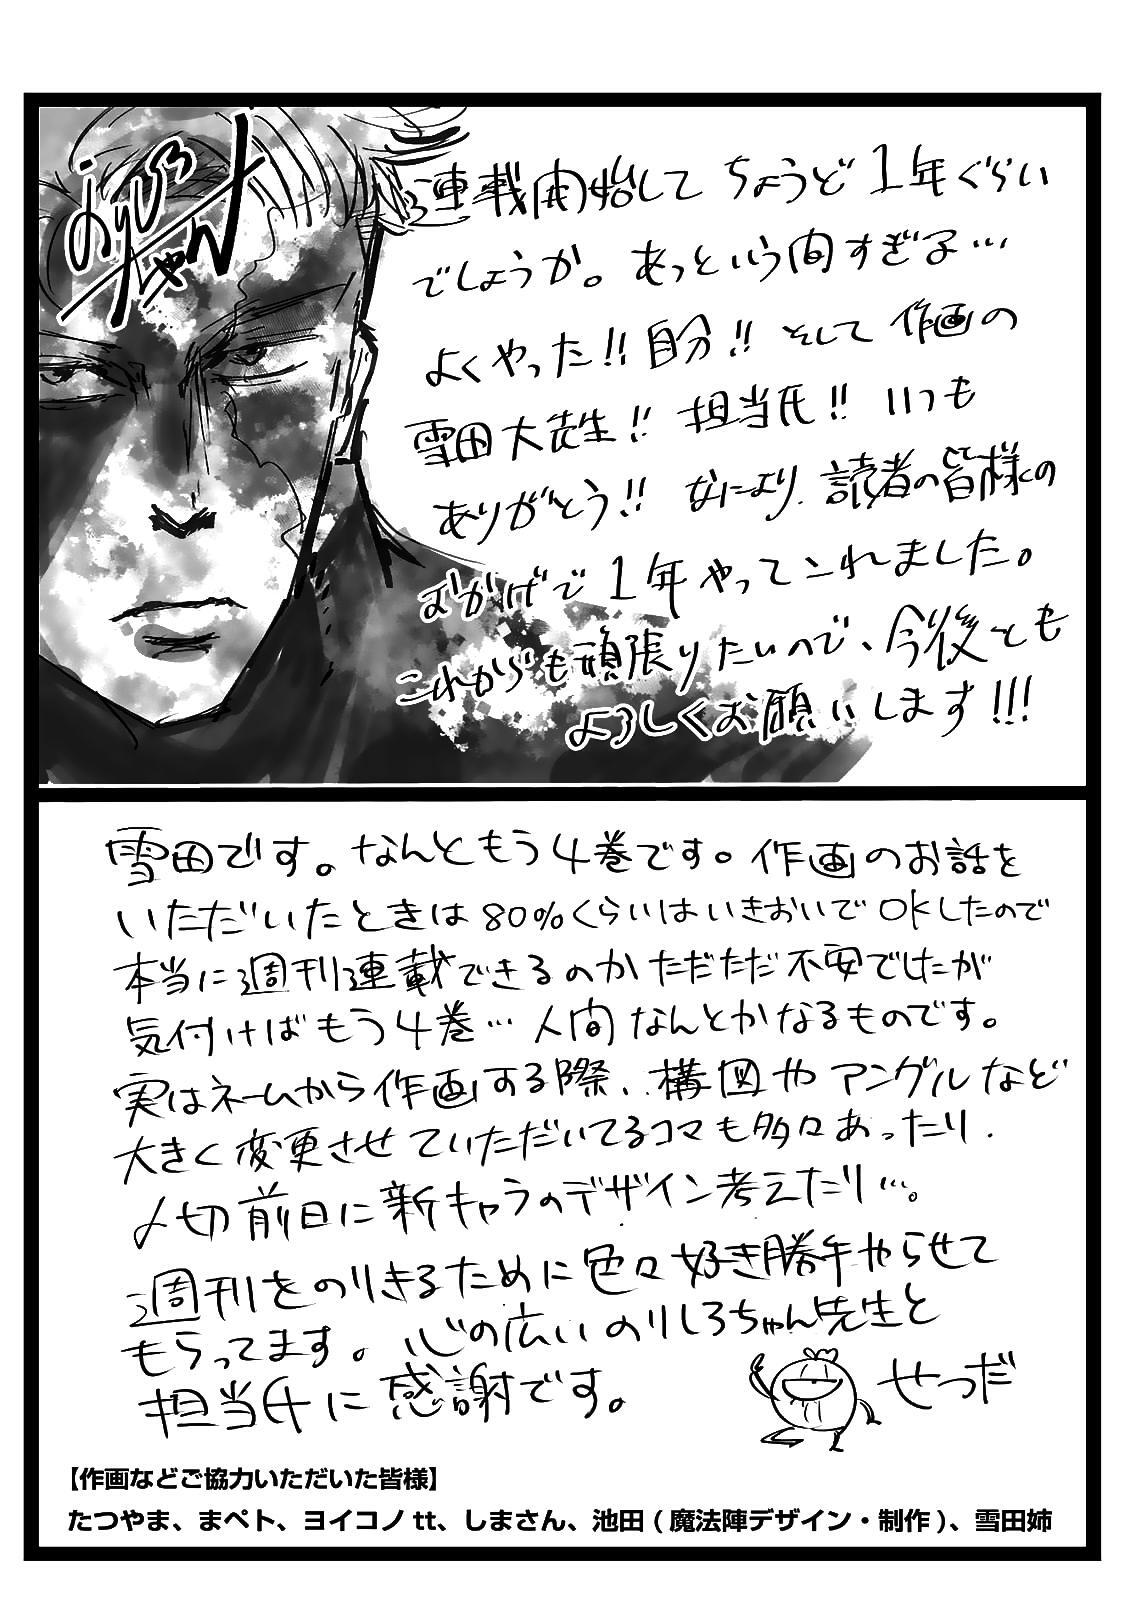 のりしろちゃん
連載開始して ちょうど 1年ぐらい
でしょうか。あっという間すぎる…
よくやった!! 自分!! そして 作画の
雪田大先生!! 担当氏!! いつも
ありがとう!! なにより、読者の皆様の
おかげで 1年やってこれました。
これからも頑張りたいので、今後とも
よろしくお願いします!!!
雪田です。なんともう4巻です。作画のお話を
いただいたときは 80%くらいはいきおいで OKしたので
本当に週刊連載できるのか ただただ 不安でしたが
気付けば もう4巻… 人間 なんとかなるものです。
実はネームから作画する際、構図や アングル など
大きく変更させていただいてるコマも多々あったり、
〆切前日に新キャラのデザイン考えたり…。
週刊をのりきるために色々好き勝手やらせて
もらってます。心の広いのりしろちゃん先生と
担当氏に感謝です。
せつだ
【作画などご協力いただいた皆様】
たつやま、まペト、ヨイコノtt、しまさん、池田(魔法陣デザイン・制作)、雪田姉